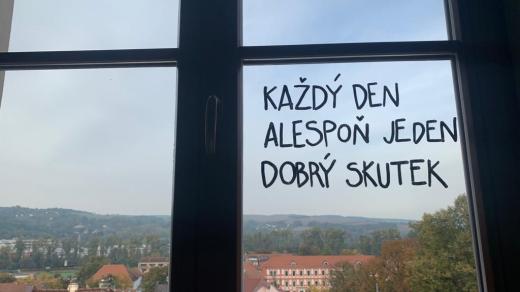 KAŽDÝ DEN
ALESPOŇ JEDEN
DOBRÝ SKUTEK